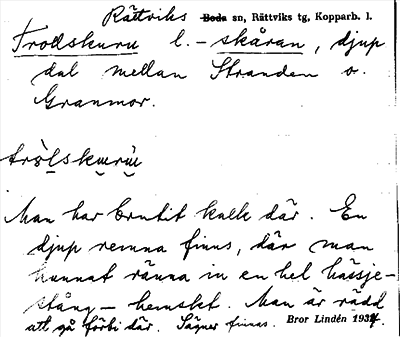 Rättviks Boda sn, Rättviks tg, Kopparb. l.
Trollskuru l. - skåran, djup
dal mellan Stranden o.
Granmor.
Man har brutit kalk där. En
djup remna finns, där man
kunnat ränna in en hel hässje-
stång - hemskt. Man är rädd
att gå förbi där. Sägner finnas. Bror Lindén 1934.